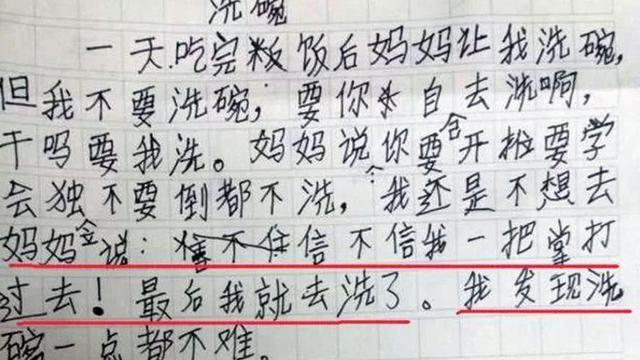 洗碗
一天.吃完粄饭后妈妈让我洗碗,
但我不要洗碗;要你自去洗啊,
干吗要我洗。妈妈说你要合开拉要学
会独不要倒都不洗,我还是不想去
妈妈会说:信不信我一把掌打
过去!最后我就去洗了。我发现洗
碗一点都不难。